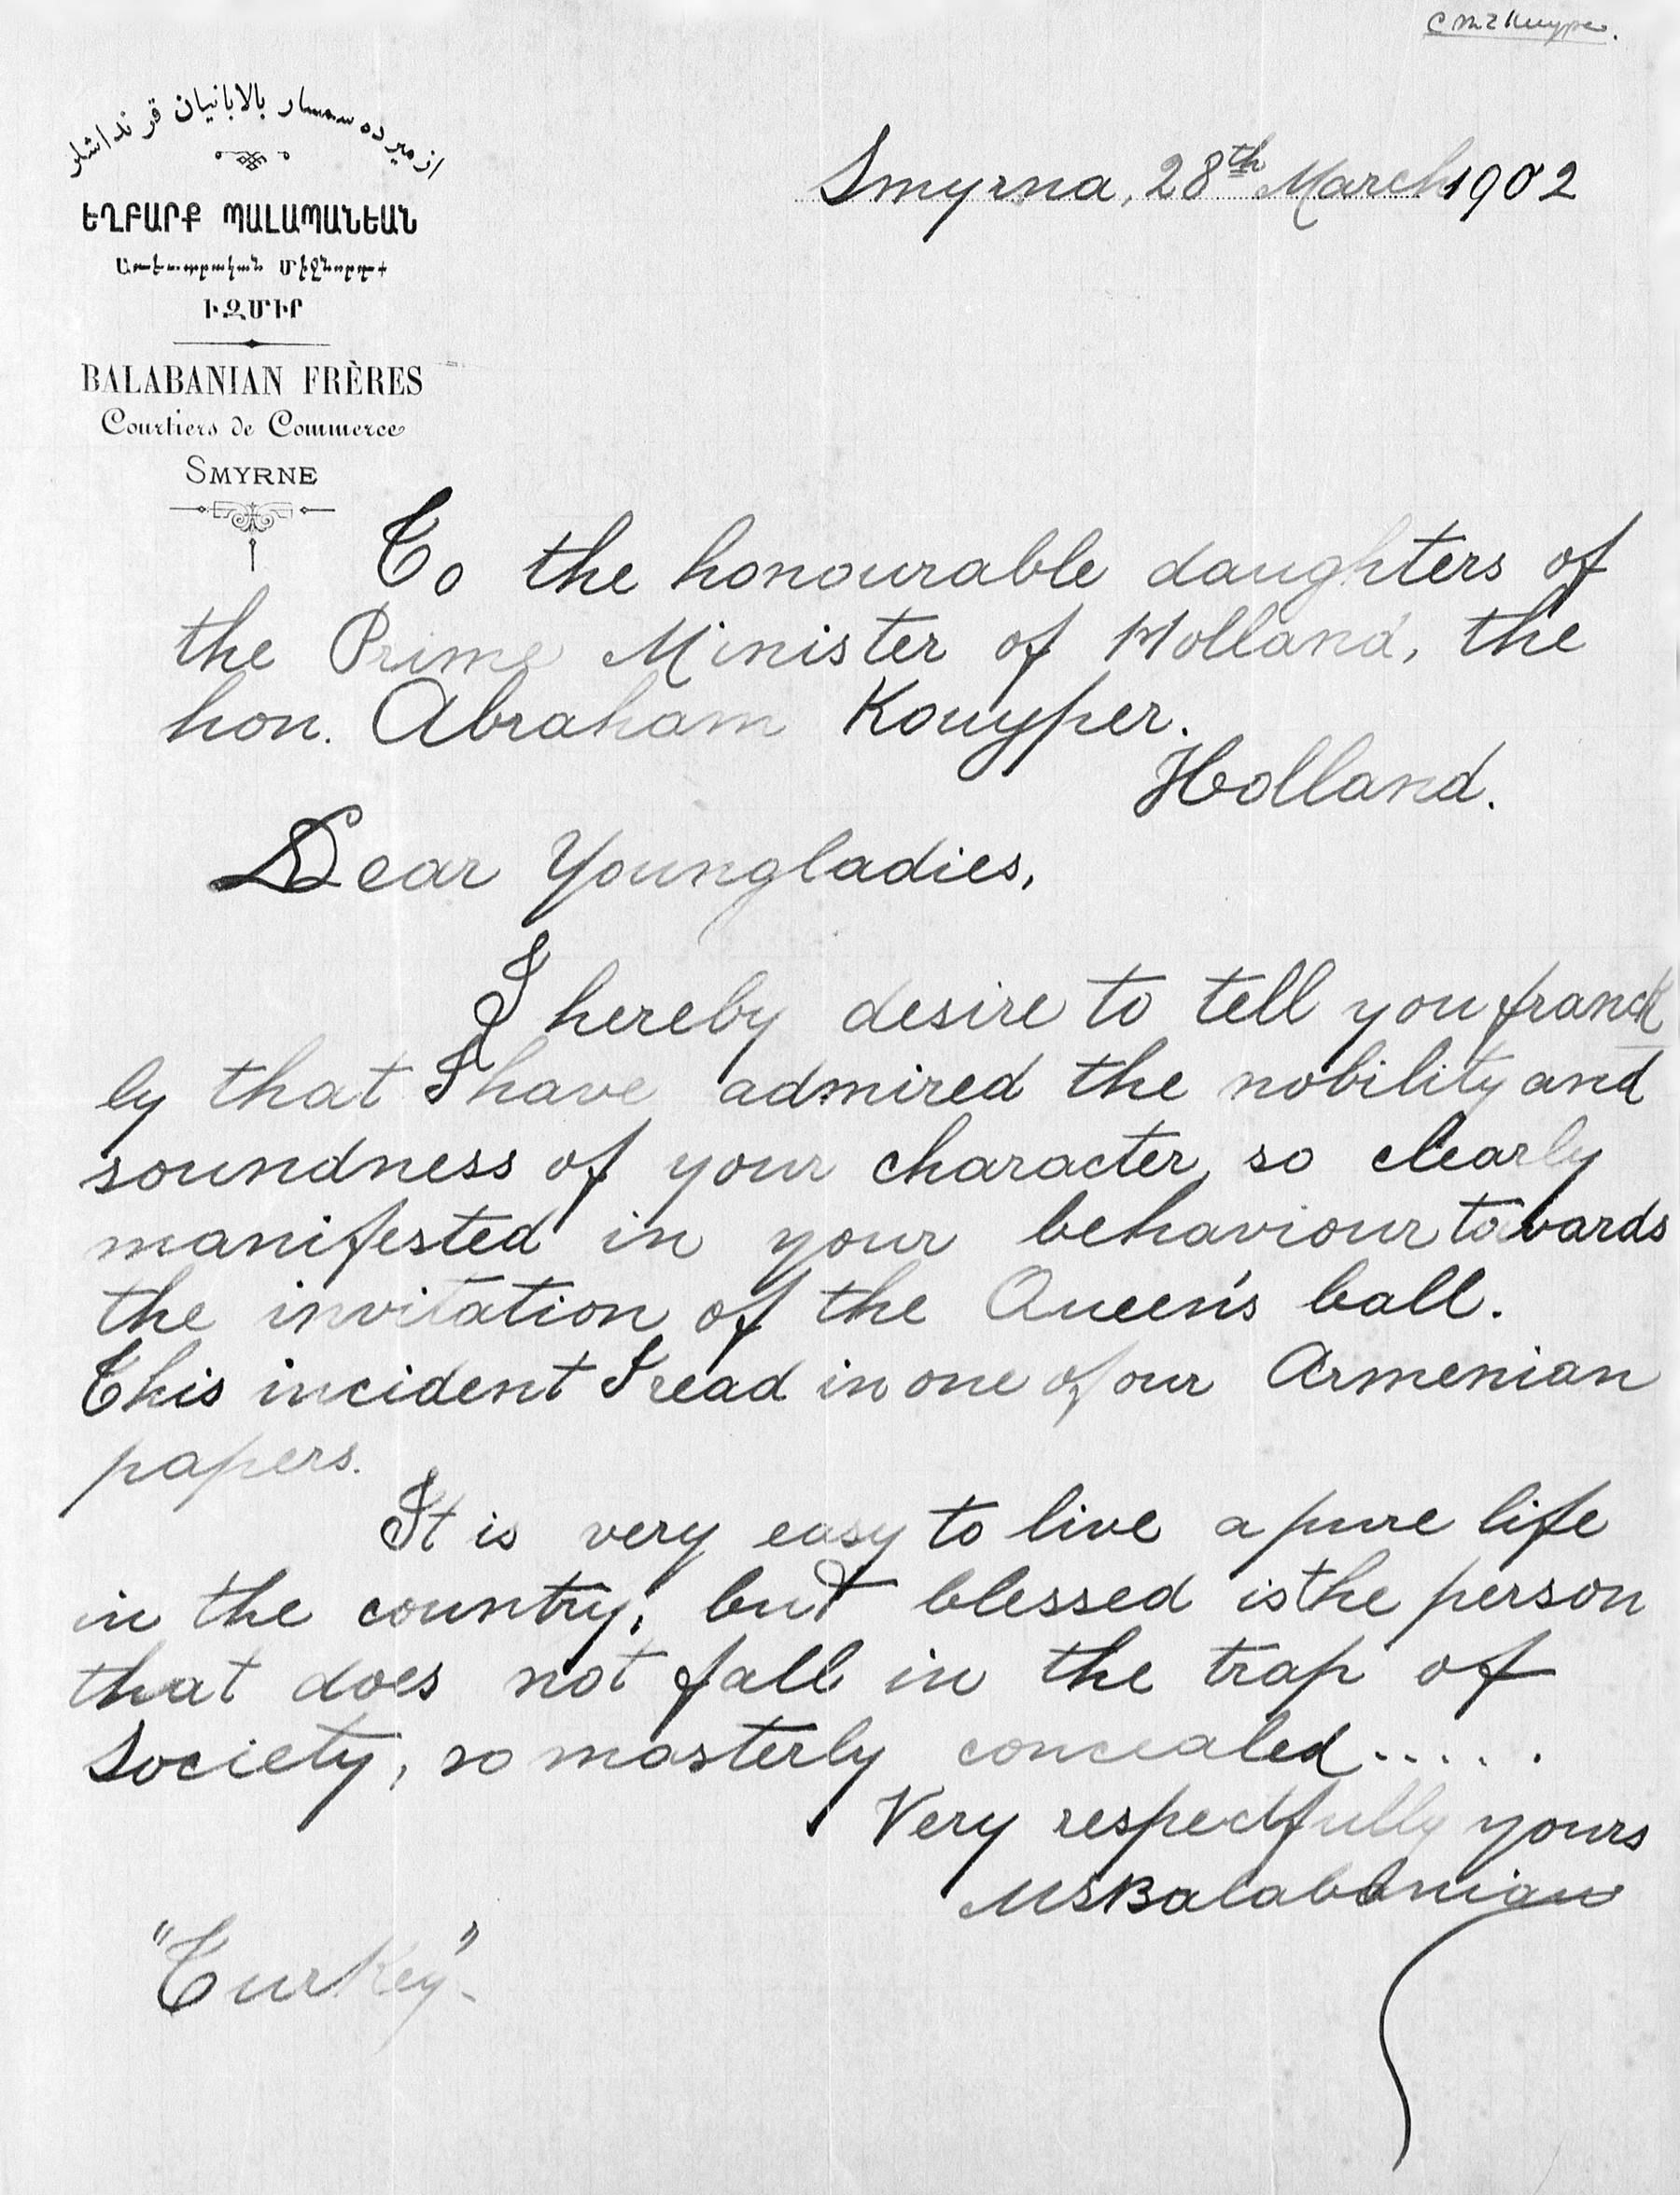 ازميرده سمسار بالابانيان قرنداشلر
ԵՂԲԱՐՔ ՊԱԼԱՊԱՆԵԱՆ
ԻԶՄԻՐ
BALABANIAN FRÈRES
Courtiers de Commerce
SMYRNE
Smyrna, 28th March 1902
To the honourable daughters of
the Prime Minister of Holland, the
hon. Abraham Kouyper.
Holland.
Dear Youngladies,
I hereby desire to tell you franck
ly that I have admired the nobility and
soundness of your character, so clearly
manifested in your behaviour towards
the invitation of the Queen's ball.
This incident I read in one of our Armenian
papers.
It is very easy to live a pure life
in the country; but blessed is the person
that does not fall in the trap of
Society, so masterly concealed.....
Very respectfully yours
MSBalabanian
"Turkey".